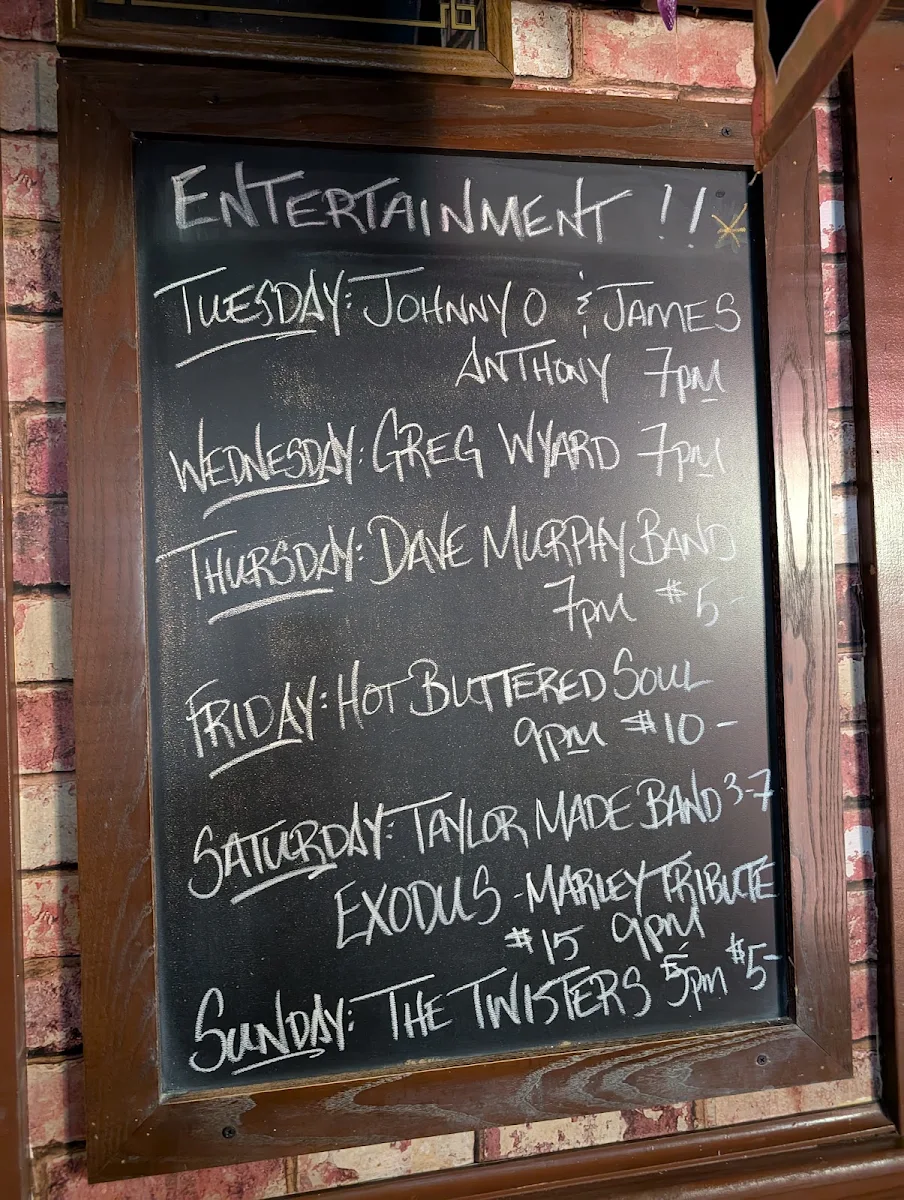 ENTERTAINMENT !!
TUESDAY: JOHNNY O & JAMES
ANTHONY 7pm
WEDNESDAY: GREG WYARD 7pm
THURSDAY: DAVE MURPHY BAND
7pm $5-
FRIDAY: HOT BUTTERED SOUL
9pm $10-
SATURDAY: TAYLOR MADE BAND 3-7
EXODUS - MARLEY TRIBUTE
$15 9pm
SUNDAY: THE TWISTERS 5pm $5-